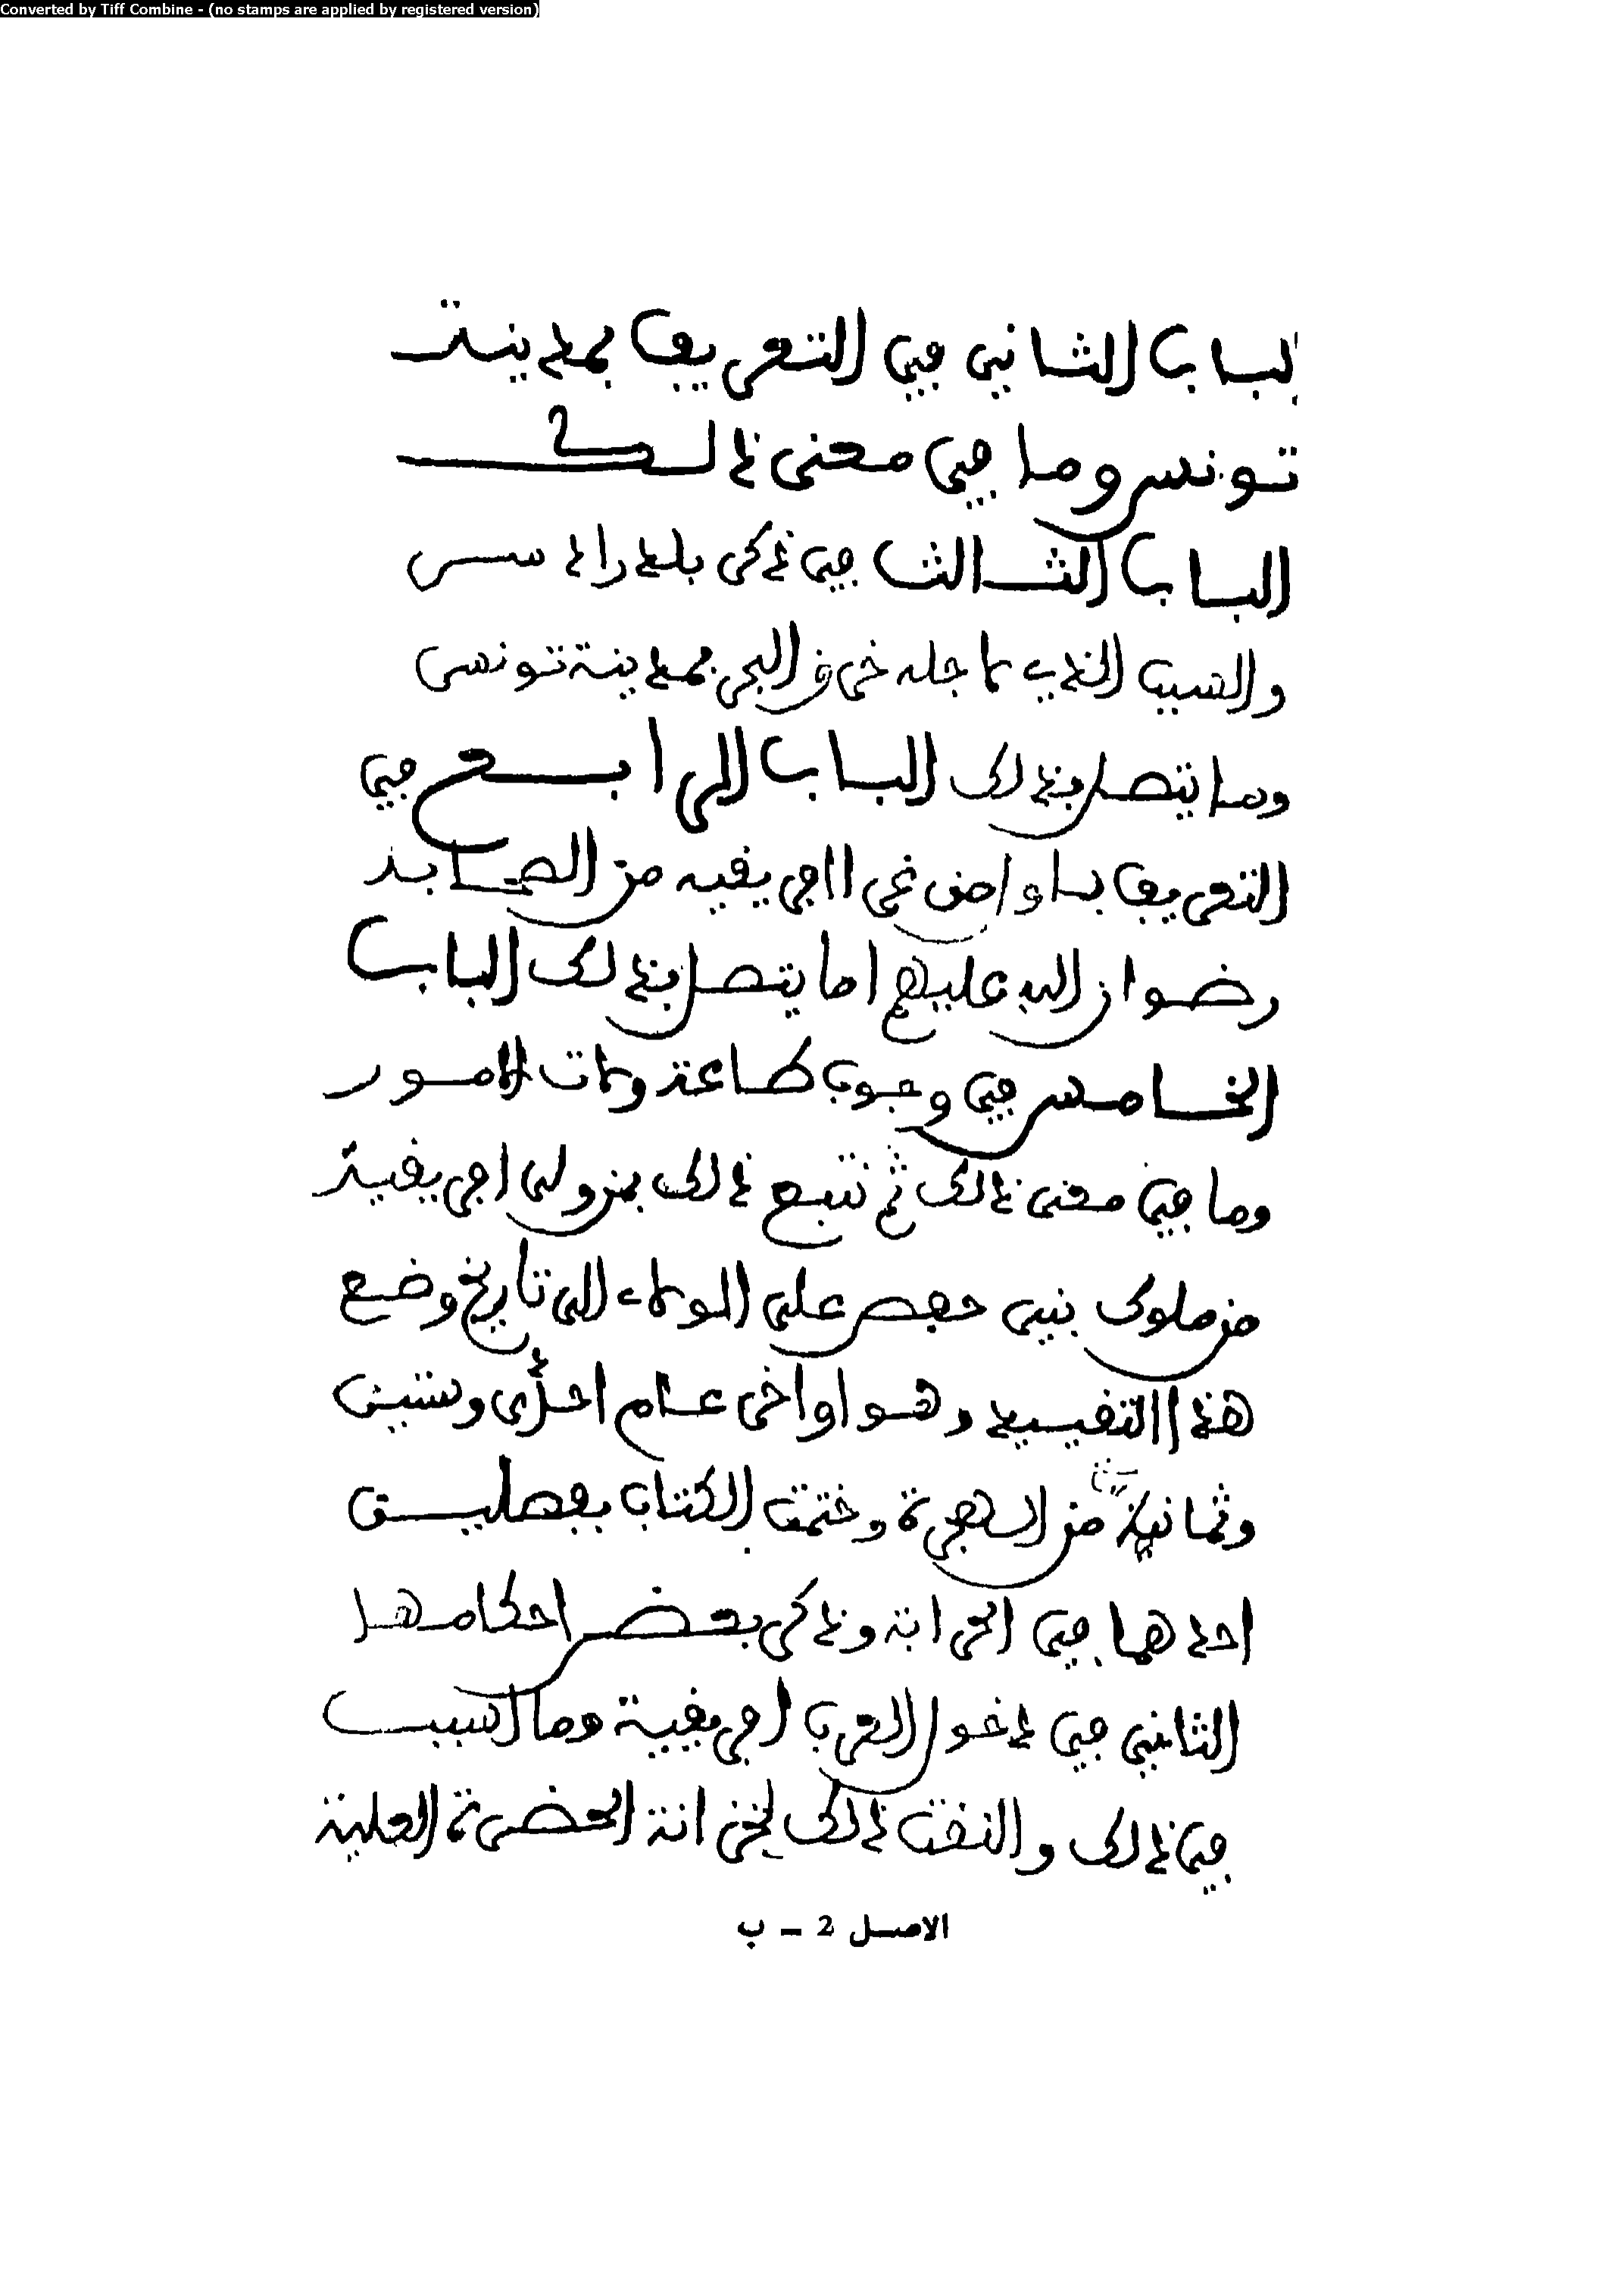 Converted by Tiff Combine - (no stamps are applied by registered version)
لباب الثاني في التعريف بمدينة
تونس وما في معنى ذلك
الباب الثالث في ذكر بلد رادس
والسبب الذي لاجله خرق البحر بمدينة تونس
وما يتصل بذلك الباب الرابع في
التعريف بدا واحض غزى افريقيه من الصحابة
رضوان الله عليهم اما يتصل بذلك الباب
الخامس في وجوب طاعة ولات الامور
وما في معنى ذلك ثم نتبع ذلك بمن ولى افريقية
من ملوك بني حفص على الولاء الى تاريخ وضع
هذا التقييد وهو اواخر عام احدى وستين
وثمانية من الهجرة وختمت الكتاب بفصلين
احدهما في الحرابة وذكر بعض احكامها
الثاني في دخول العرب افريقية وما السبب
في ذلك والفت ذلك لخزانة الحضرة العلية
الاصل 2 - ب